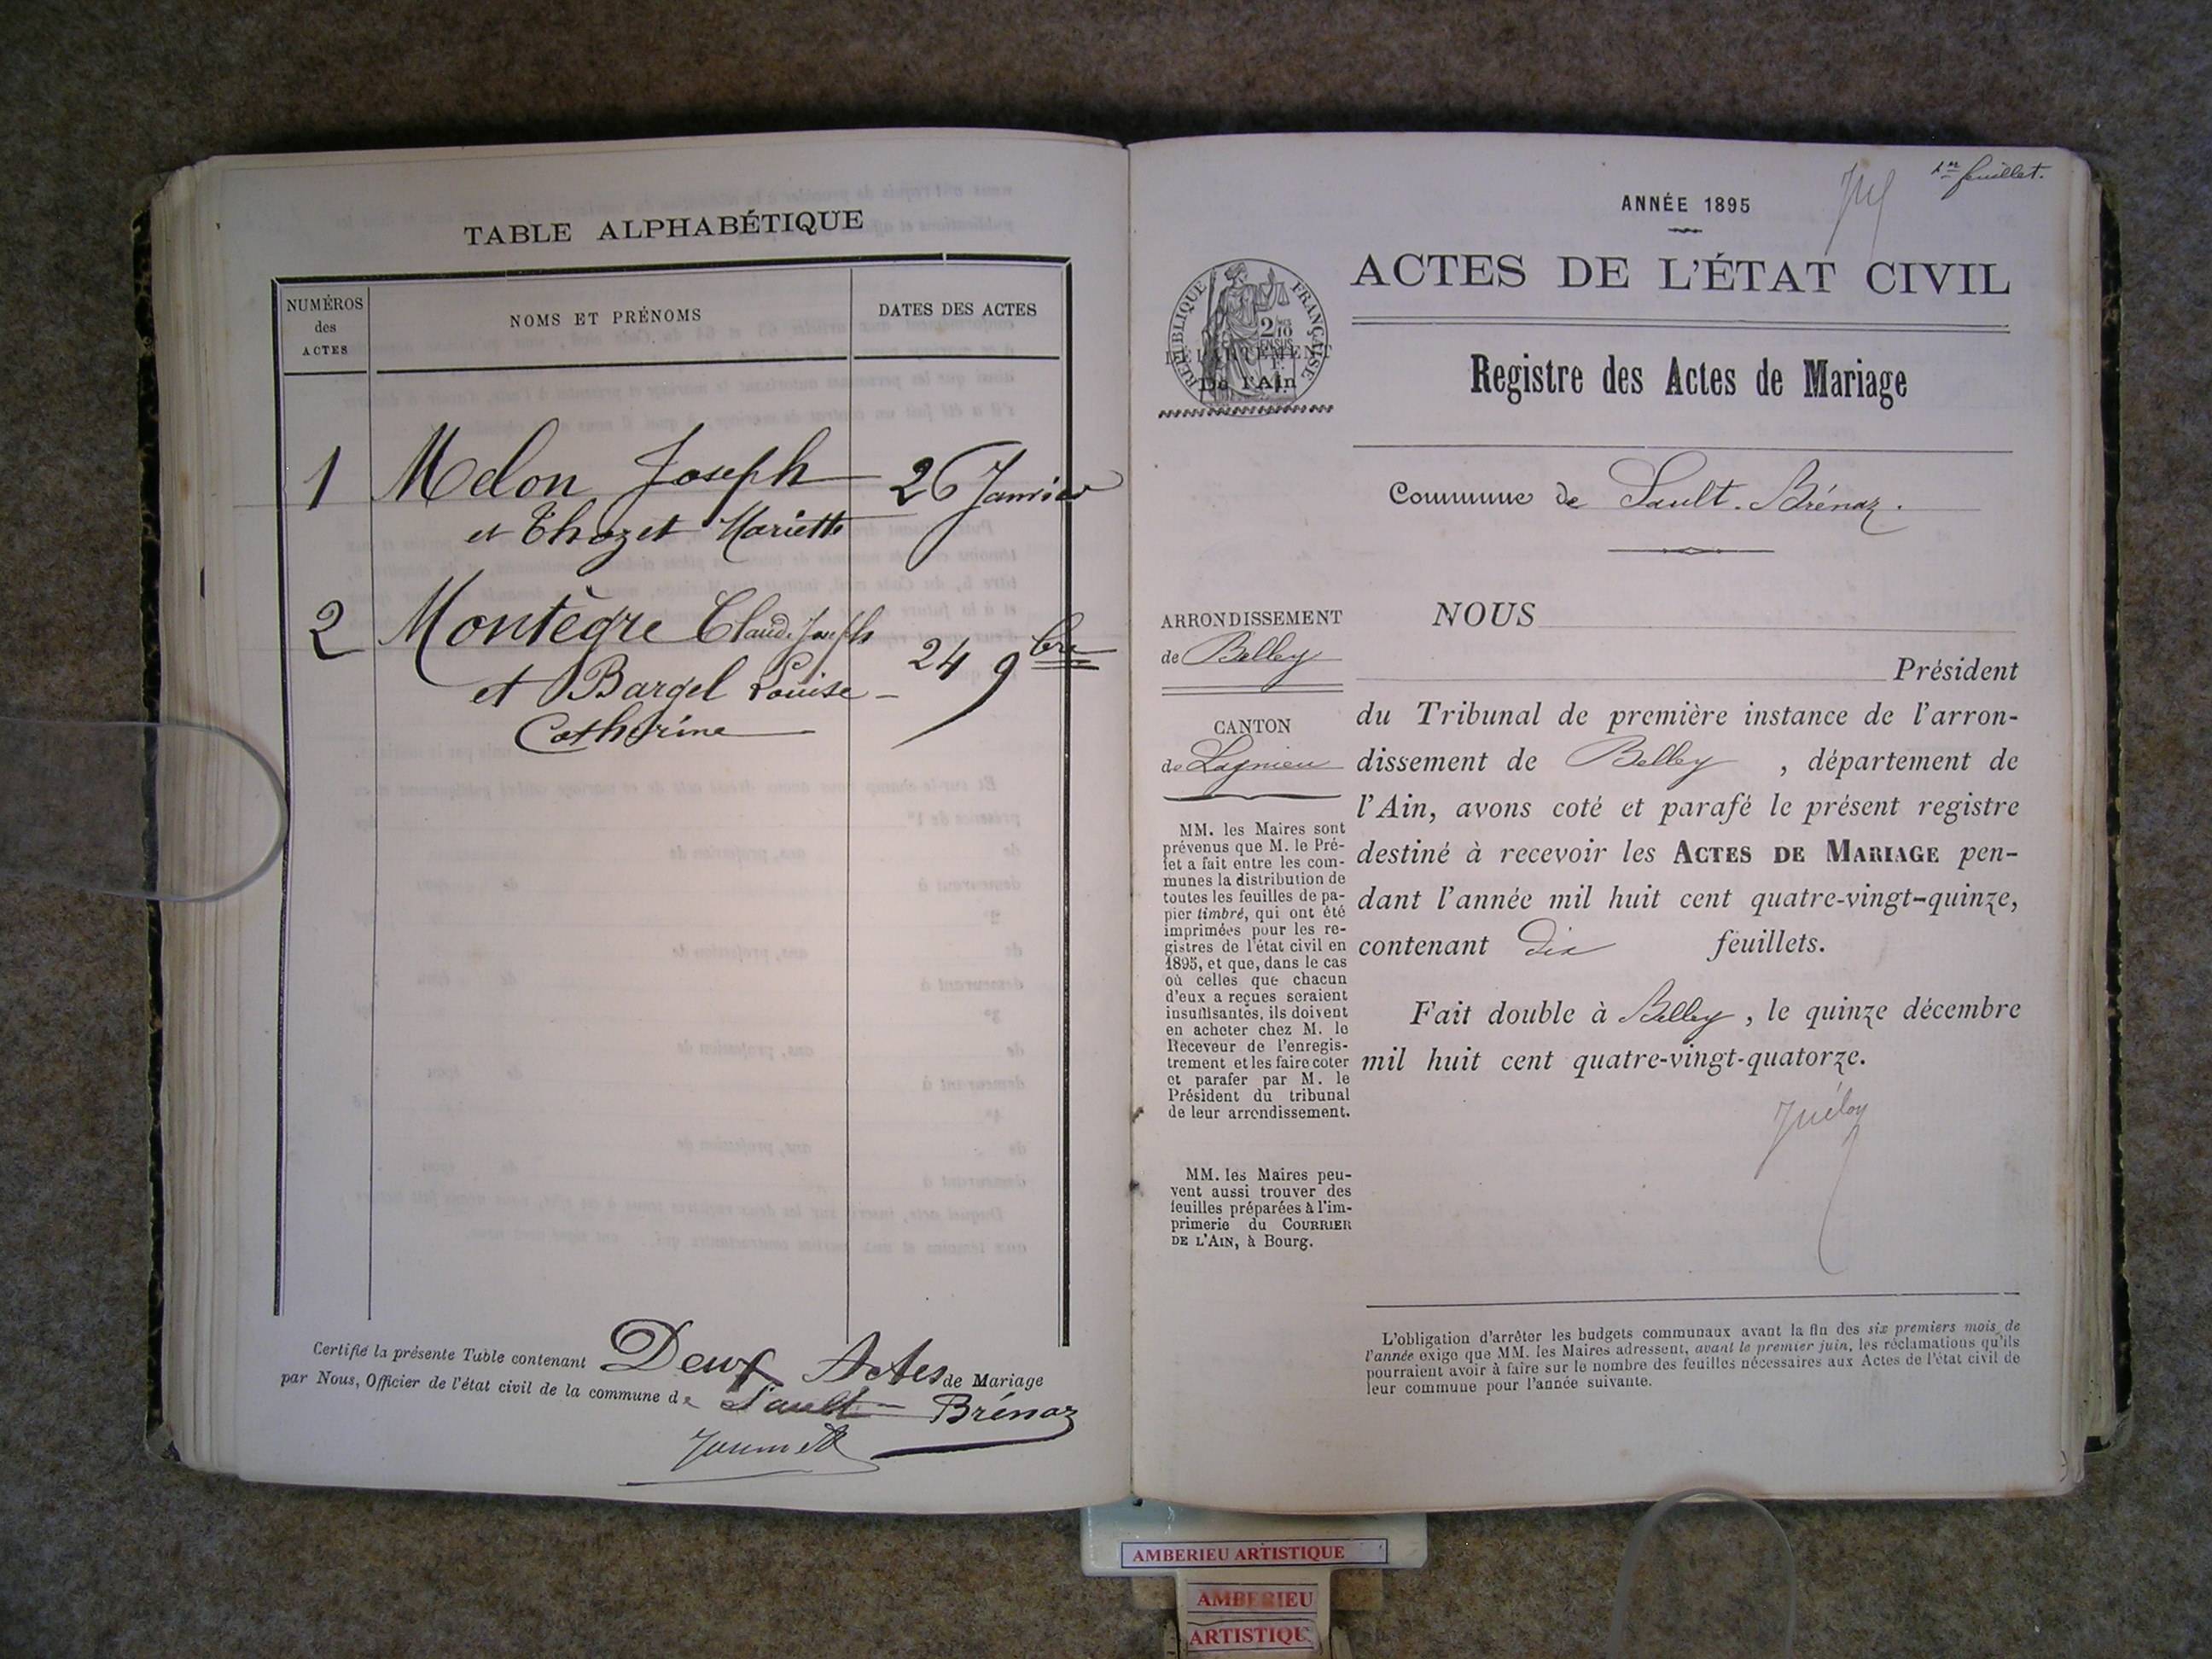 TABLE ALPHABÉTIQUE
NUMÉROS
des
ACTES
NOMS ET PRÉNOMS
DATES DES ACTES
1 Melon Joseph 26 Janvier
et Thozet Mariette
2 Montègre Claude Joseph
24 9bre
et Bargel Louise
Catherine
Certifié la présente Table contenant Deux Actes de Mariage
par Nous, Officier de l'état civil de la commune de Sault-Brénaz
1er feuillet.
ANNÉE 1895
ACTES DE L'ÉTAT CIVIL
RÉPUBLIQUE FRANÇAISE
DÉPARTEMENT
De l'Ain
Registre des Actes de Mariage
Commune de Sault-Brénaz.
ARRONDISSEMENT
de Belley
CANTON
de Lagnieu
MM. les Maires sont
prévenus que M. le Pré-
fet a fait entre les com-
munes la distribution de
toutes les feuilles de pa-
pier timbré, qui ont été
imprimées pour les re-
gistres de l'état civil en
1895, et que, dans le cas
où celles que chacun
d'eux a reçues seraient
insuffisantes, ils doivent
en acheter chez M. le
Receveur de l'enregis-
trement et les faire coter
et parafer par M. le
Président du tribunal
de leur arrondissement.
MM. les Maires peu-
vent aussi trouver des
feuilles préparées à l'im-
primerie du COURRIER
DE L'AIN, à Bourg.
NOUS
Président
du Tribunal de première instance de l'arron-
dissement de Belley , département de
l'Ain, avons coté et parafé le présent registre
destiné à recevoir les ACTES DE MARIAGE pen-
dant l'année mil huit cent quatre-vingt-quinze,
contenant dix feuillets.
Fait double à Belley , le quinze décembre
mil huit cent quatre-vingt-quatorze.
L'obligation d'arrêter les budgets communaux avant la fin des six premiers mois de
l'année exige que MM. les Maires adressent, avant le premier juin, les réclamations qu'ils
pourraient avoir à faire sur le nombre des feuilles nécessaires aux Actes de l'état civil de
leur commune pour l'année suivante.
AMBERIEU ARTISTIQUE
AMBERIEU
ARTISTIQUE